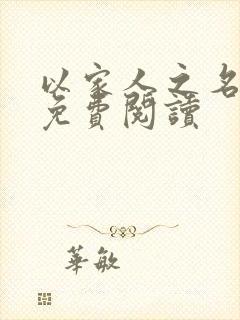 以家人之名
免費閱讀
華敏